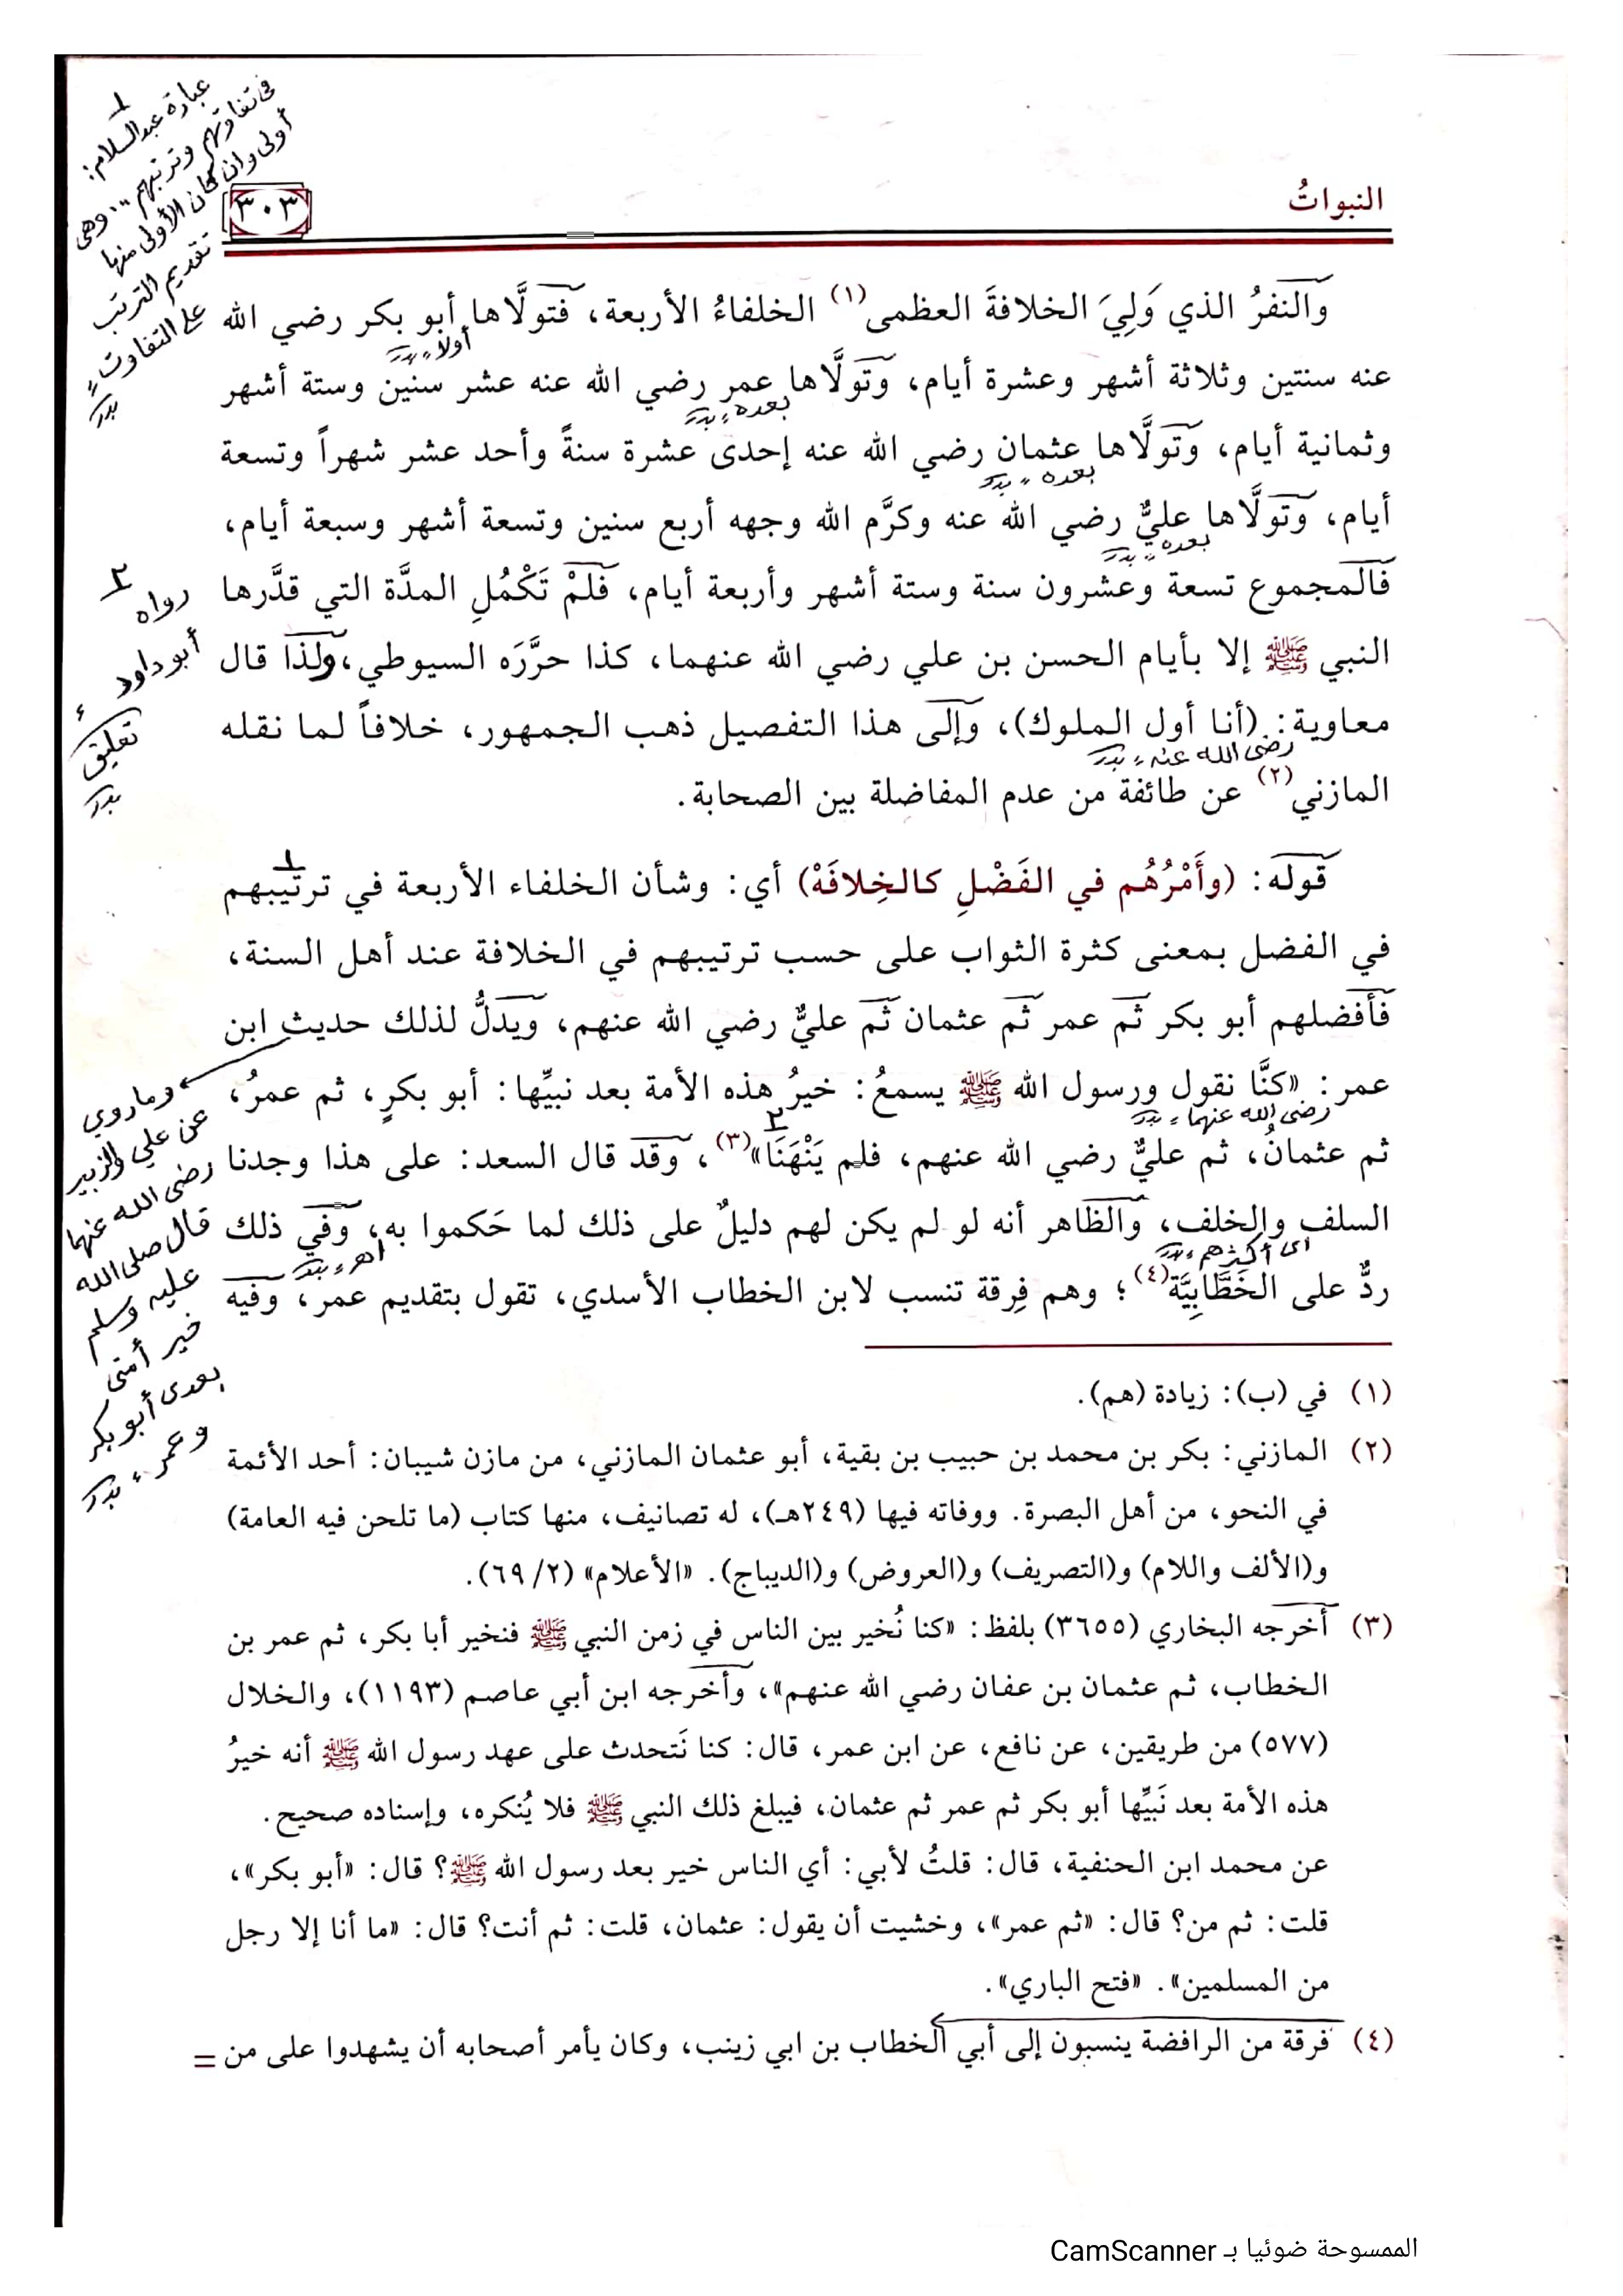 النبواتُ
٣٠٣
والنفرُ الذي وَلِيَ الخلافةَ العظمى(١) الخلفاءُ الأربعة، فتولَّاها أبو بكر رضي الله
أولا، بدر
عنه سنتين وثلاثة أشهر وعشرة أيام، وتَولَّاها عمر رضي الله عنه عشر سنين وستة أشهر
بعده، بدر
وثمانية أيام، وتَولَّاها عثمان رضي الله عنه إحدى عشرة سنةً وأحد عشر شهراً وتسعة
بعده، بدر
أيام، وتَولَّاها عليٌّ رضي الله عنه وكرَّم الله وجهه أربع سنين وتسعة أشهر وسبعة أيام،
بعده، بدر
فالمجموع تسعة وعشرون سنة وستة أشهر وأربعة أيام، فلمْ تَكْمُلِ المدَّة التي قدَّرها
النبي ﷺ إلا بأيام الحسن بن علي رضي الله عنهما، كذا حرَّرَه السيوطي، ولذا قال
معاوية: (أنا أول الملوك)، وإلى هذا التفصيل ذهب الجمهور، خلافاً لما نقله
رضى الله عنه، بدر
المازني(٢) عن طائفة من عدم المفاضلة بين الصحابة.
قوله: (وأَمْرُهُم في الفَضْلِ كالخِلافَهْ) أي: وشأن الخلفاء الأربعة في ترتيبهم
١
في الفضل بمعنى كثرة الثواب على حسب ترتيبهم في الخلافة عند أهل السنة،
فأفضلهم أبو بكر ثم عمر ثم عثمان ثم عليٌّ رضي الله عنهم، ويدلُّ لذلك حديث ابن
عمر: «كنَّا نقول ورسول الله ﷺ يسمعُ: خيرُ هذه الأمة بعد نبيِّها: أبو بكرٍ، ثم عمرُ،
رضى الله عنهما، بدر
٢
ثم عثمانُ، ثم عليٌّ رضي الله عنهم، فلم يَنْهَنَا»(٣)، وقد قال السعد: على هذا وجدنا
السلف والخلف، والظاهر أنه لو لم يكن لهم دليلٌ على ذلك لما حَكموا به، وفي ذلك
اى أكثرهم، بدر
اهـ، بدر
ردٌّ على الخَطَّابِيَّة(٤)؛ وهم فِرقة تنسب لابن الخطاب الأسدي، تقول بتقديم عمر، وفيه
(١) في (ب): زيادة (هم).
(٢) المازني: بكر بن محمد بن حبيب بن بقية، أبو عثمان المازني، من مازن شيبان: أحد الأئمة
في النحو، من أهل البصرة. ووفاته فيها (٢٤٩هـ)، له تصانيف، منها كتاب (ما تلحن فيه العامة)
و(الألف واللام) و(التصريف) و(العروض) و(الديباج). «الأعلام» (٢/ ٦٩).
(٣) أخرجه البخاري (٣٦٥٥) بلفظ: «كنا نُخير بين الناس في زمن النبي ﷺ فنخير أبا بكر، ثم عمر بن
الخطاب، ثم عثمان بن عفان رضي الله عنهم»، وأخرجه ابن أبي عاصم (١١٩٣)، والخلال
(٥٧٧) من طريقين، عن نافع، عن ابن عمر، قال: كنا نَتحدث على عهد رسول الله ﷺ أنه خيرُ
هذه الأمة بعد نَبيِّها أبو بكر ثم عمر ثم عثمان، فيبلغ ذلك النبي ﷺ فلا يُنكره، وإسناده صحيح.
عن محمد ابن الحنفية، قال: قلتُ لأبي: أي الناس خير بعد رسول الله ﷺ؟ قال: «أبو بكر»،
قلت: ثم من؟ قال: «ثم عمر»، وخشيت أن يقول: عثمان، قلت: ثم أنت؟ قال: «ما أنا إلا رجل
من المسلمين». «فتح الباري».
(٤) فرقة من الرافضة ينسبون إلى أبي الخطاب بن ابي زينب، وكان يأمر أصحابه أن يشهدوا على من =
١
عبارة عبدالسلام:
فى تفاوتهم وترتبهم، وهى
أولى وان كان الأولى منها
تقديم الترتب
على التفاوت،
بدر
٢
رواه
أبو داود،
تعليق
بدر
وما روي
عن علي والزبير
رضى الله عنهما
قال صلى الله
عليه وسلم
خير أمتى
بعدى أبو بكر
وعمر، بدر
الممسوحة ضوئيا بـ CamScanner